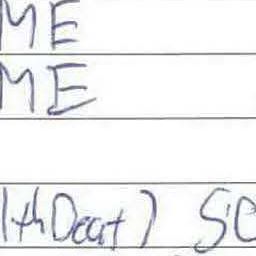 ME
ME
lthDeat) SC